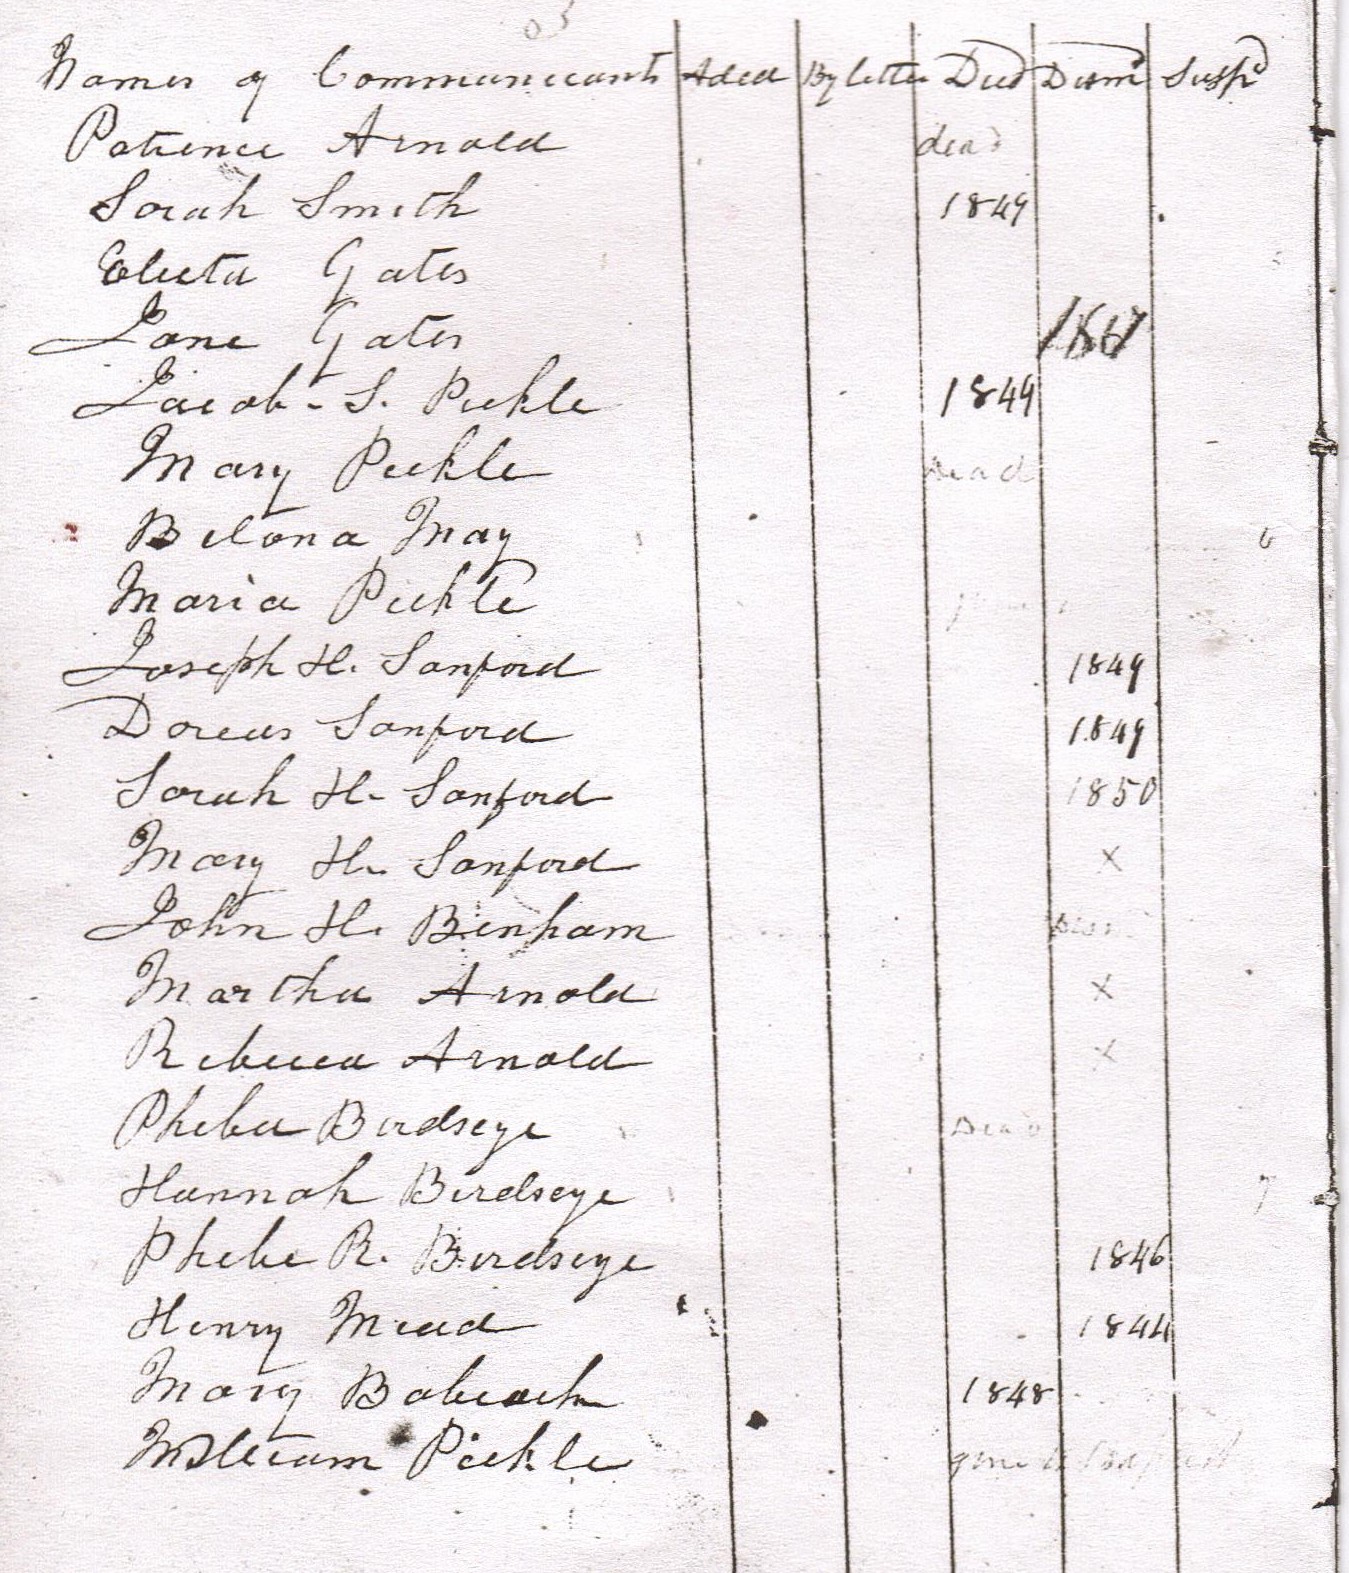 Names of Communicants Aded By letter Died Dism'd Susp'd
Patience Arnold dead
Sarah Smith 1849
Electa Gates
Jane Gates 1867
Jacob - S. Pickle 1849
Mary Pickle Dead
Belona May
Maria Pickle
Joseph H. Sanford 1849
Dorcas Sanford 1849
Sarah H. Sanford 1850
Mary H. Sanford X
John H. Benham Dism
Martha Arnold X
Rebecca Arnold X
Pheba Birdseye Dead
Hannah Birdseye
Phebe R. Birdseye 1846
Henry Mead 1844
Mary Babcock 1848
William Pickle gone to